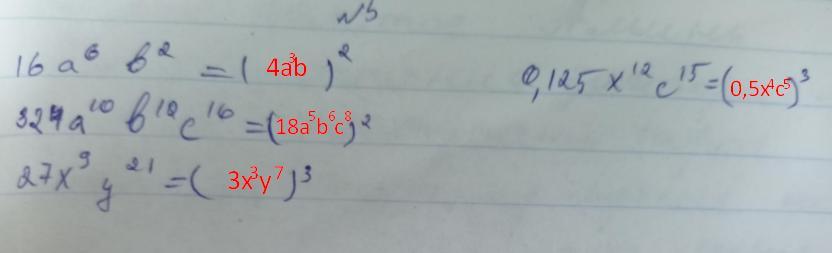 №5
16a⁶ b² = ( 4a³b )²
324a¹⁰ b¹²c¹⁶ = (18a⁵b⁶c⁸)²
27x⁹ y²¹ = ( 3x³y⁷ )³
0,125 x¹² c¹⁵ = (0,5x⁴c⁵)³